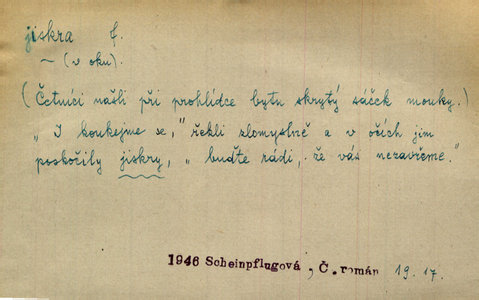 jiskra f.
~ (v oku).
(Četníci našli při prohlídce bytu skrytý sáček mouky.)
„I koukejme se,“ řekli zlomyslně a v očích jim
poskočily jiskry, „buďte rádi, že vás nezavřeme.“
1946 Scheinpflugová, Č. román 19. 17.